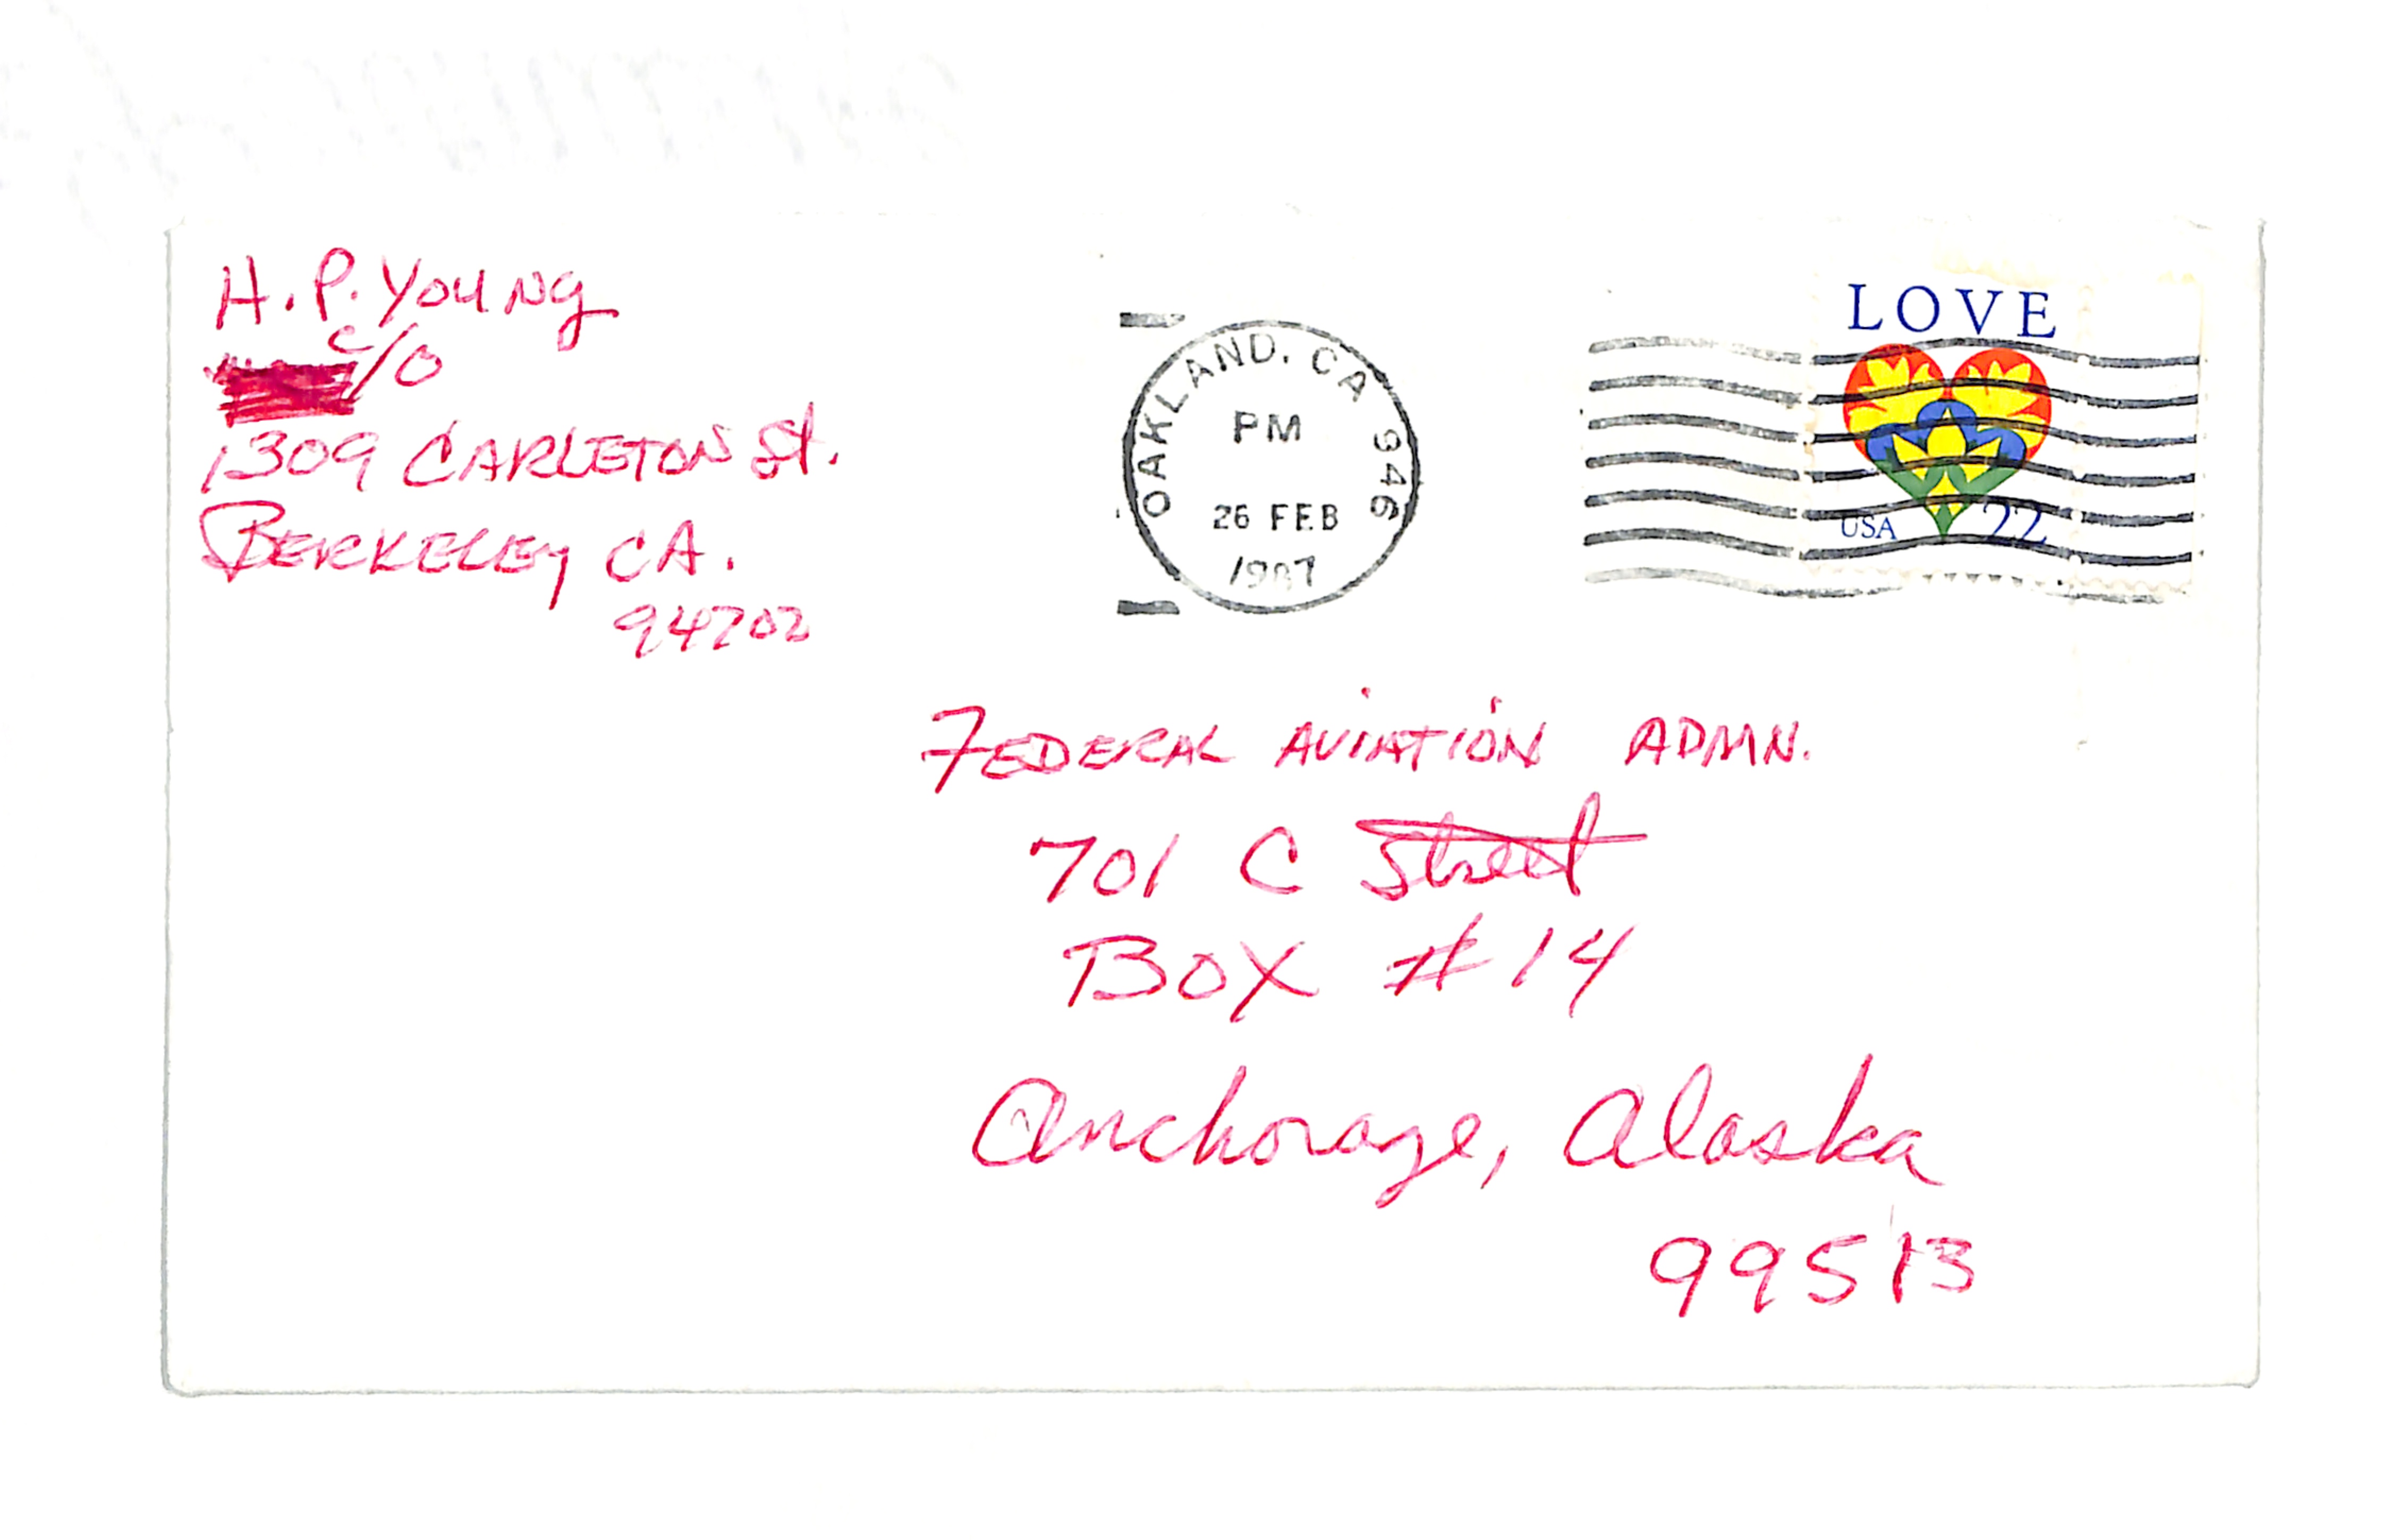 H. P. YOUNG
c/o
1309 CARLETON St.
BERKELEY CA.
94702
OAKLAND, CA 946
PM
26 FEB
1987
LOVE
USA 22
FEDERAL AVIATION ADMN.
701 C Street
BOX #14
Anchorage, Alaska
99513